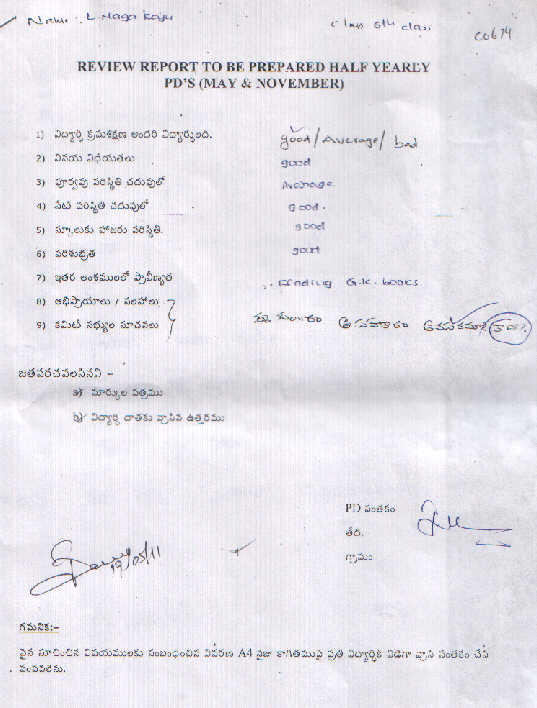 Name: L Naga Raju Class 5th class C0674
REVIEW REPORT TO BE PREPARED HALF YEARLY
PD'S (MAY & NOVEMBER)
1) విద్యార్థి క్రమశిక్షణ అందరి విద్యార్థులది. good/Average/bad
2) వినయ విధేయతలు good
3) పూర్వపు పరిస్థితి చదువులో Average
4) నేటి పరిస్థితి చదువులో good.
5) స్కూలుకు హాజరు పరిస్థితి. good
6) పరిశుభ్రత good
7) ఇతర అంశములలో ప్రావీణ్యత reading G.K. books
8) అభిప్రాయాలు / సలహాలు
9) కమిటీ సభ్యుల సూచనలు
జతపరచవలసినవి –
a) మార్కుల పత్రము
b) విద్యార్థి దాతకు వ్రాసిన ఉత్తరము
PD సంతకం
తేది.
గ్రామం
19/05/11
గమనిక:–
పైన సూచించిన విషయములకు సంబంధించిన వివరణ A4 సైజు కాగితముపై ప్రతి విద్యార్థికి విడిగా వ్రాసి సంతకం చేసి
పంపవలెను.